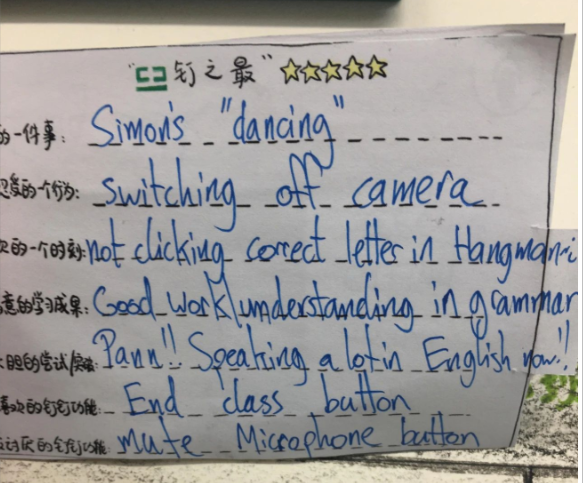 "钉钉之最" ☆☆☆☆☆
的一件事: Simon's "dancing"
的一个行为: switching off camera
的一个时刻: not clicking correct letter in Hangman
意的学习成果: Good work/understanding in grammar
大胆的尝试/突破: Pann!! Speaking a lot in English now!!
喜欢的钉钉功能: End class button
讨厌的钉钉功能: Mute Microphone button